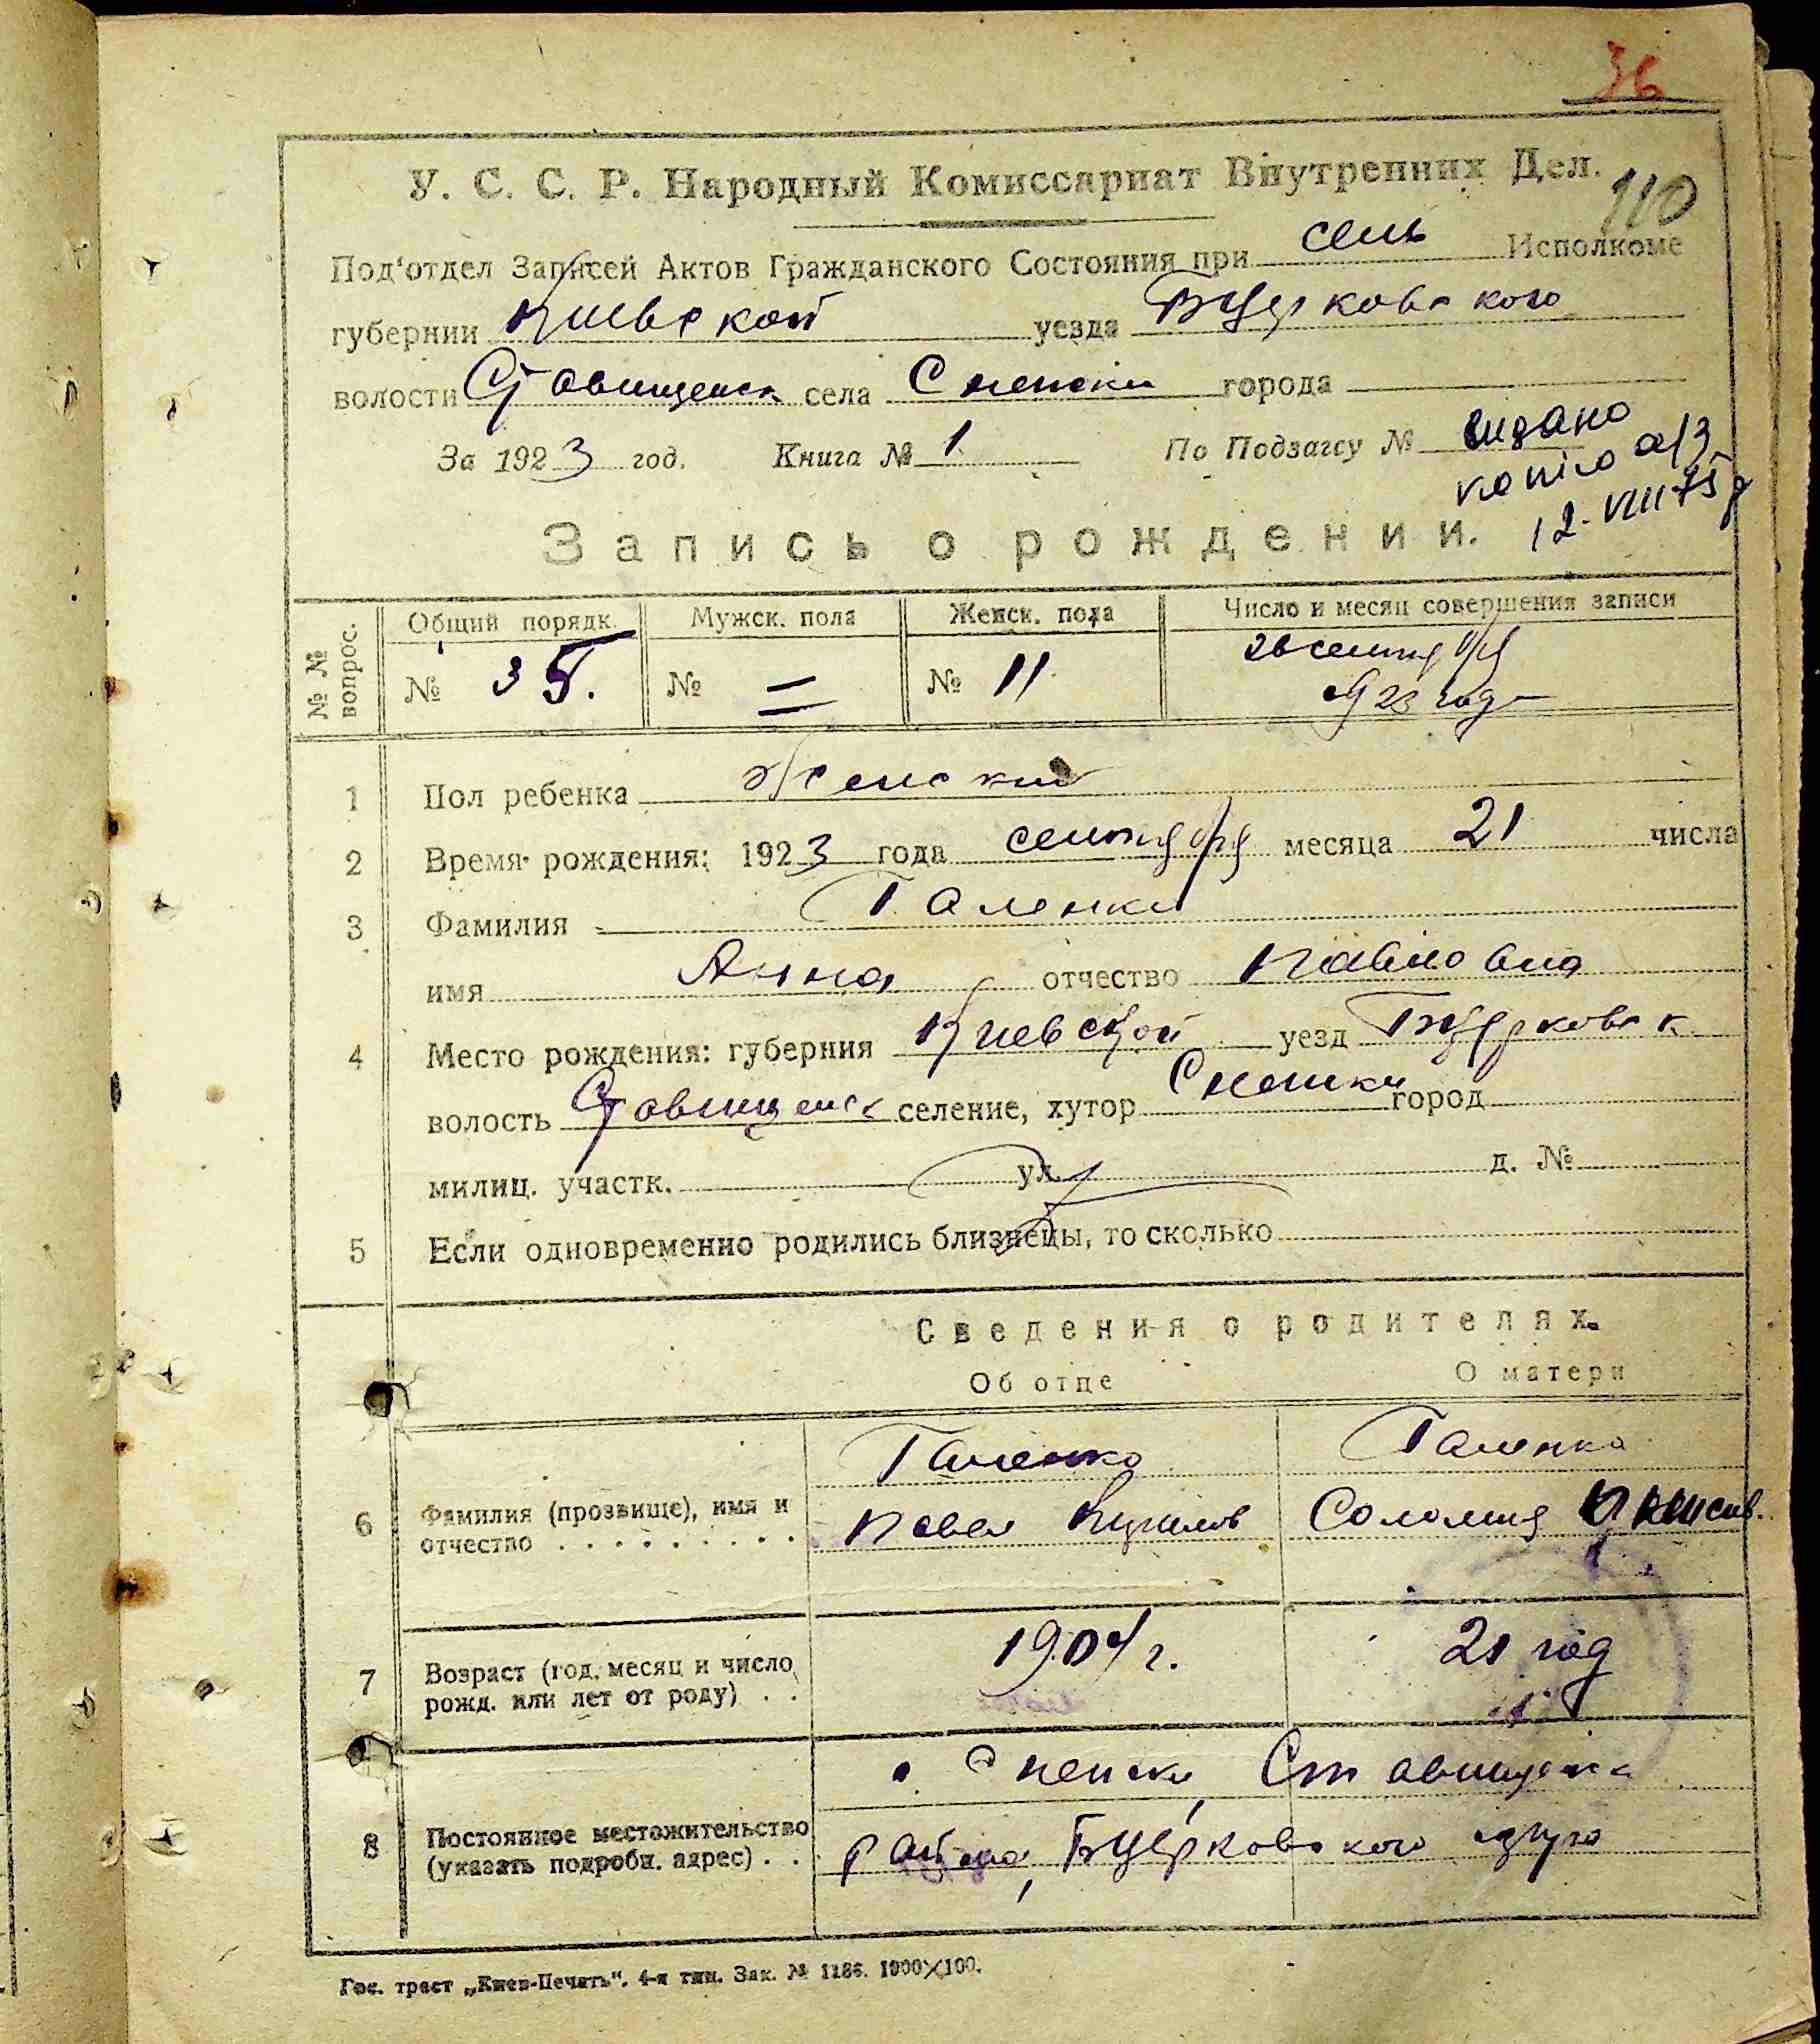 36
У. С. С. Р. Народный Комиссариат Внутренних Дел.
110
Под‘отдел Записей Актов Гражданского Состояния при сель Исполкоме
губернии Киевской уезда Бцерковского
волости Ставищенск села Снежки города
За 1923 год. Книга № 1 По Подзагсу №
видано
копiю а/з
12-VIII 75 р
Запись о рождении.
№ № вопрос. Общий порядк. Мужск. пола Женск. пола Число и месяц совершения записи
№ 35. № = № 11. 26 сентября
1923 года
1 Пол ребенка Женский
2 Время рождения: 1923 года сентября месяца 21 числа
3 Фамилия Галенко
имя Анна отчество Павловна
4 Место рождения: губерния Киевской уезд Бцерковск
волость Ставищенск селение, хутор Снежки город
милиц. участк. ул. д. №
5 Если одновременно родились близнецы, то сколько
Сведения о родителях.
Об отце О матери
Галенко Галенко
6 Фамилия (прозвище), имя и
отчество . . . . . . . . . Павел Соломия
7 Возраст (год, месяц и число
рожд. или лет от роду) . . 1904 г. 21 год
Снежки, Ставищенск
8 Постоянное местожительство
(указать подробн. адрес) . . района, Бцерковского округа
Гос. трест „Киев-Печать“. 4-я тип. Зак. № 1186. 1000×100.